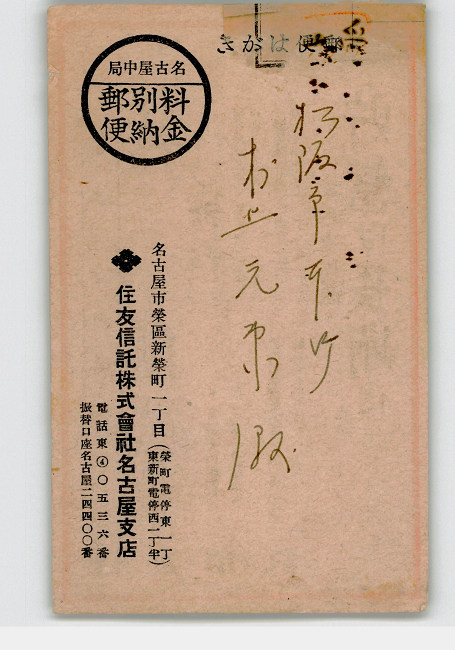 郵便はがき
松阪市平生
村上元東殿
名古屋中局
料金別納郵便
名古屋市榮區新榮町一丁目(榮町電停東一丁 東新町電停西一丁半)
住友信託株式會社名古屋支店
電話東④〇五三六番
振替口座名古屋二四四〇〇番